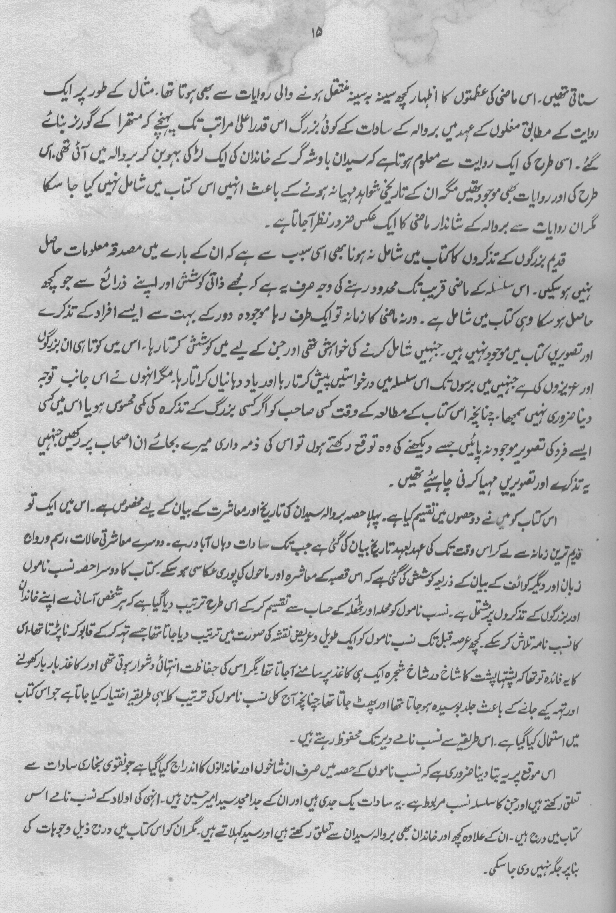 ۱۵
سناتی تھیں۔ اس ماضی کی عظمتوں کا اظہار کچھ سینہ بہ سینہ منتقل ہونے والی روایات سے بھی ہوتا تھا۔ مثال کے طور پر ایک
روایت کے مطابق مغلوں کے عہد میں بروالہ کے سادات کے کوئی بزرگ اس قدر اعلیٰ مراتب تک پہنچے کہ متھرا کے گورنر بنائے
گئے۔ اسی طرح کی ایک روایت سے معلوم ہوتا ہے کہ سیدان بادشہ گر کے خاندان کی ایک لڑکی بہو بن کر بروالہ میں آئی تھی۔ اسی
طرح کی اور روایات بھی موجود تھیں مگر ان کے تاریخی شواہد مہیا نہ ہونے کے باعث انہیں اس کتاب میں شامل نہیں کیا جا سکا
مگر ان روایات سے بروالہ کے شاندار ماضی کا ایک عکس ضرور نظر آ جاتا ہے۔
قدیم بزرگوں کے تذکروں کا کتاب میں شامل نہ ہونا بھی اسی سبب سے ہے کہ ان کے بارے میں مصدقہ معلومات حاصل
نہیں ہو سکیں۔ اس سلسلہ کے ماضی قریب تک محدود رہنے کی وجہ صرف یہ ہے کہ مجھے ذاتی کوشش اور اپنے ذرائع سے جو کچھ
حاصل ہو سکا وہی کتاب میں شامل ہے۔ ورنہ ماضی کا زمانہ تو ایک طرف رہا موجودہ دور کے بہت سے ایسے افراد کے تذکرے
اور تصویریں کتاب میں موجود نہیں ہیں۔ جنہیں شامل کرنے کی خواہش تھی اور جن کے لیے میں کوشش کرتا رہا۔ اس میں کوتاہی ان بزرگوں
اور عزیزوں کی ہے جنہیں میں برسوں تک اس سلسلہ میں درخواستیں پیش کرتا رہا اور یاد دہانیاں کراتا رہا۔ مگر انہوں نے اس جانب توجہ
دینا ضروری نہیں سمجھا۔ چنانچہ اس کتاب کے مطالعہ کے وقت کسی صاحب کو اگر کسی بزرگ کے تذکرہ کی کمی محسوس ہو یا اس میں کسی
ایسے فرد کی تصویر موجود نہ پائیں جسے دیکھنے کی وہ توقع رکھتے ہوں تو اس کی ذمہ داری میرے بجائے ان اصحاب پر رکھیں جنہیں
یہ تذکرے اور تصویریں مہیا کرنی چاہئیے تھیں۔
اس کتاب کو میں نے دو حصوں میں تقسیم کیا ہے۔ پہلا حصہ بروالہ سیدان کی تاریخ اور معاشرت کے بیان کے لیے مخصوص ہے۔ اس میں ایک تو
قدیم ترین زمانہ سے لے کر اس وقت تک کی عہد بعہد تاریخ بیان کی گئی ہے جب تک سادات وہاں آباد رہے۔ دوسرے معاشرتی حالات، رسم و رواج
زبان اور دیگر کوائف کے بیان کے ذریعہ کوشش کی گئی ہے کہ اس قصبہ کے معاشرہ اور ماحول کی پوری عکاسی ہو سکے۔ کتاب کا دوسرا حصہ نسب ناموں
اور بزرگوں کے تذکروں پر مشتمل ہے۔ نسب ناموں کو محلہ اور محلہ کے حساب سے تقسیم کر کے اس طرح ترتیب دیا گیا ہے کہ ہر شخص آسانی سے اپنے خاندان
کا نسب نامہ تلاش کر سکے۔ کچھ عرصہ قبل تک نسب ناموں کو ایک طویل و عریض نقشہ کی صورت میں ترتیب دیا جاتا تھا جسے تہہ کر کے قابو کرنا پڑتا تھا۔ اس
کا یہ فائدہ تو تھا کہ پشتہا پشت کا شاخ در شاخ شجرہ ایک ہی کاغذ پر سامنے آ جاتا تھا مگر اس کی حفاظت انتہائی دشوار ہوتی تھی اور کاغذ بار بار کھولنے
اور تہہ کیے جانے کے باعث جلد بوسیدہ ہو جاتا تھا اور پھٹ جاتا تھا چنانچہ آج کل نسب ناموں کی ترتیب کا ہی طریقہ اختیار کیا جاتا ہے جو اس کتاب
میں استعمال کیا گیا ہے۔ اس طریقہ سے نسب نامے دیر تک محفوظ رہتے ہیں۔
اس موقع پر یہ بتا دینا ضروری ہے کہ نسب ناموں کے حصہ میں صرف ان شاخوں اور خاندانوں کا اندراج کیا گیا ہے جو نقوی بخاری سادات سے
تعلق رکھتے ہیں اور جن کا سلسلہ نسب مربوط ہے۔ یہ سادات یک جدی ہیں اور ان کے جد امجد سید امیر حسین ہیں۔ انہی کی اولاد کے نسب نامے اس
کتاب میں درج ہیں۔ ان کے علاوہ کچھ اور خاندان بھی بروالہ سیدان سے تعلق رکھتے ہیں اور سید کہلاتے ہیں۔ مگر ان کو اس کتاب میں درج ذیل وجوہات کی
بنا پر جگہ نہیں دی جا سکی۔